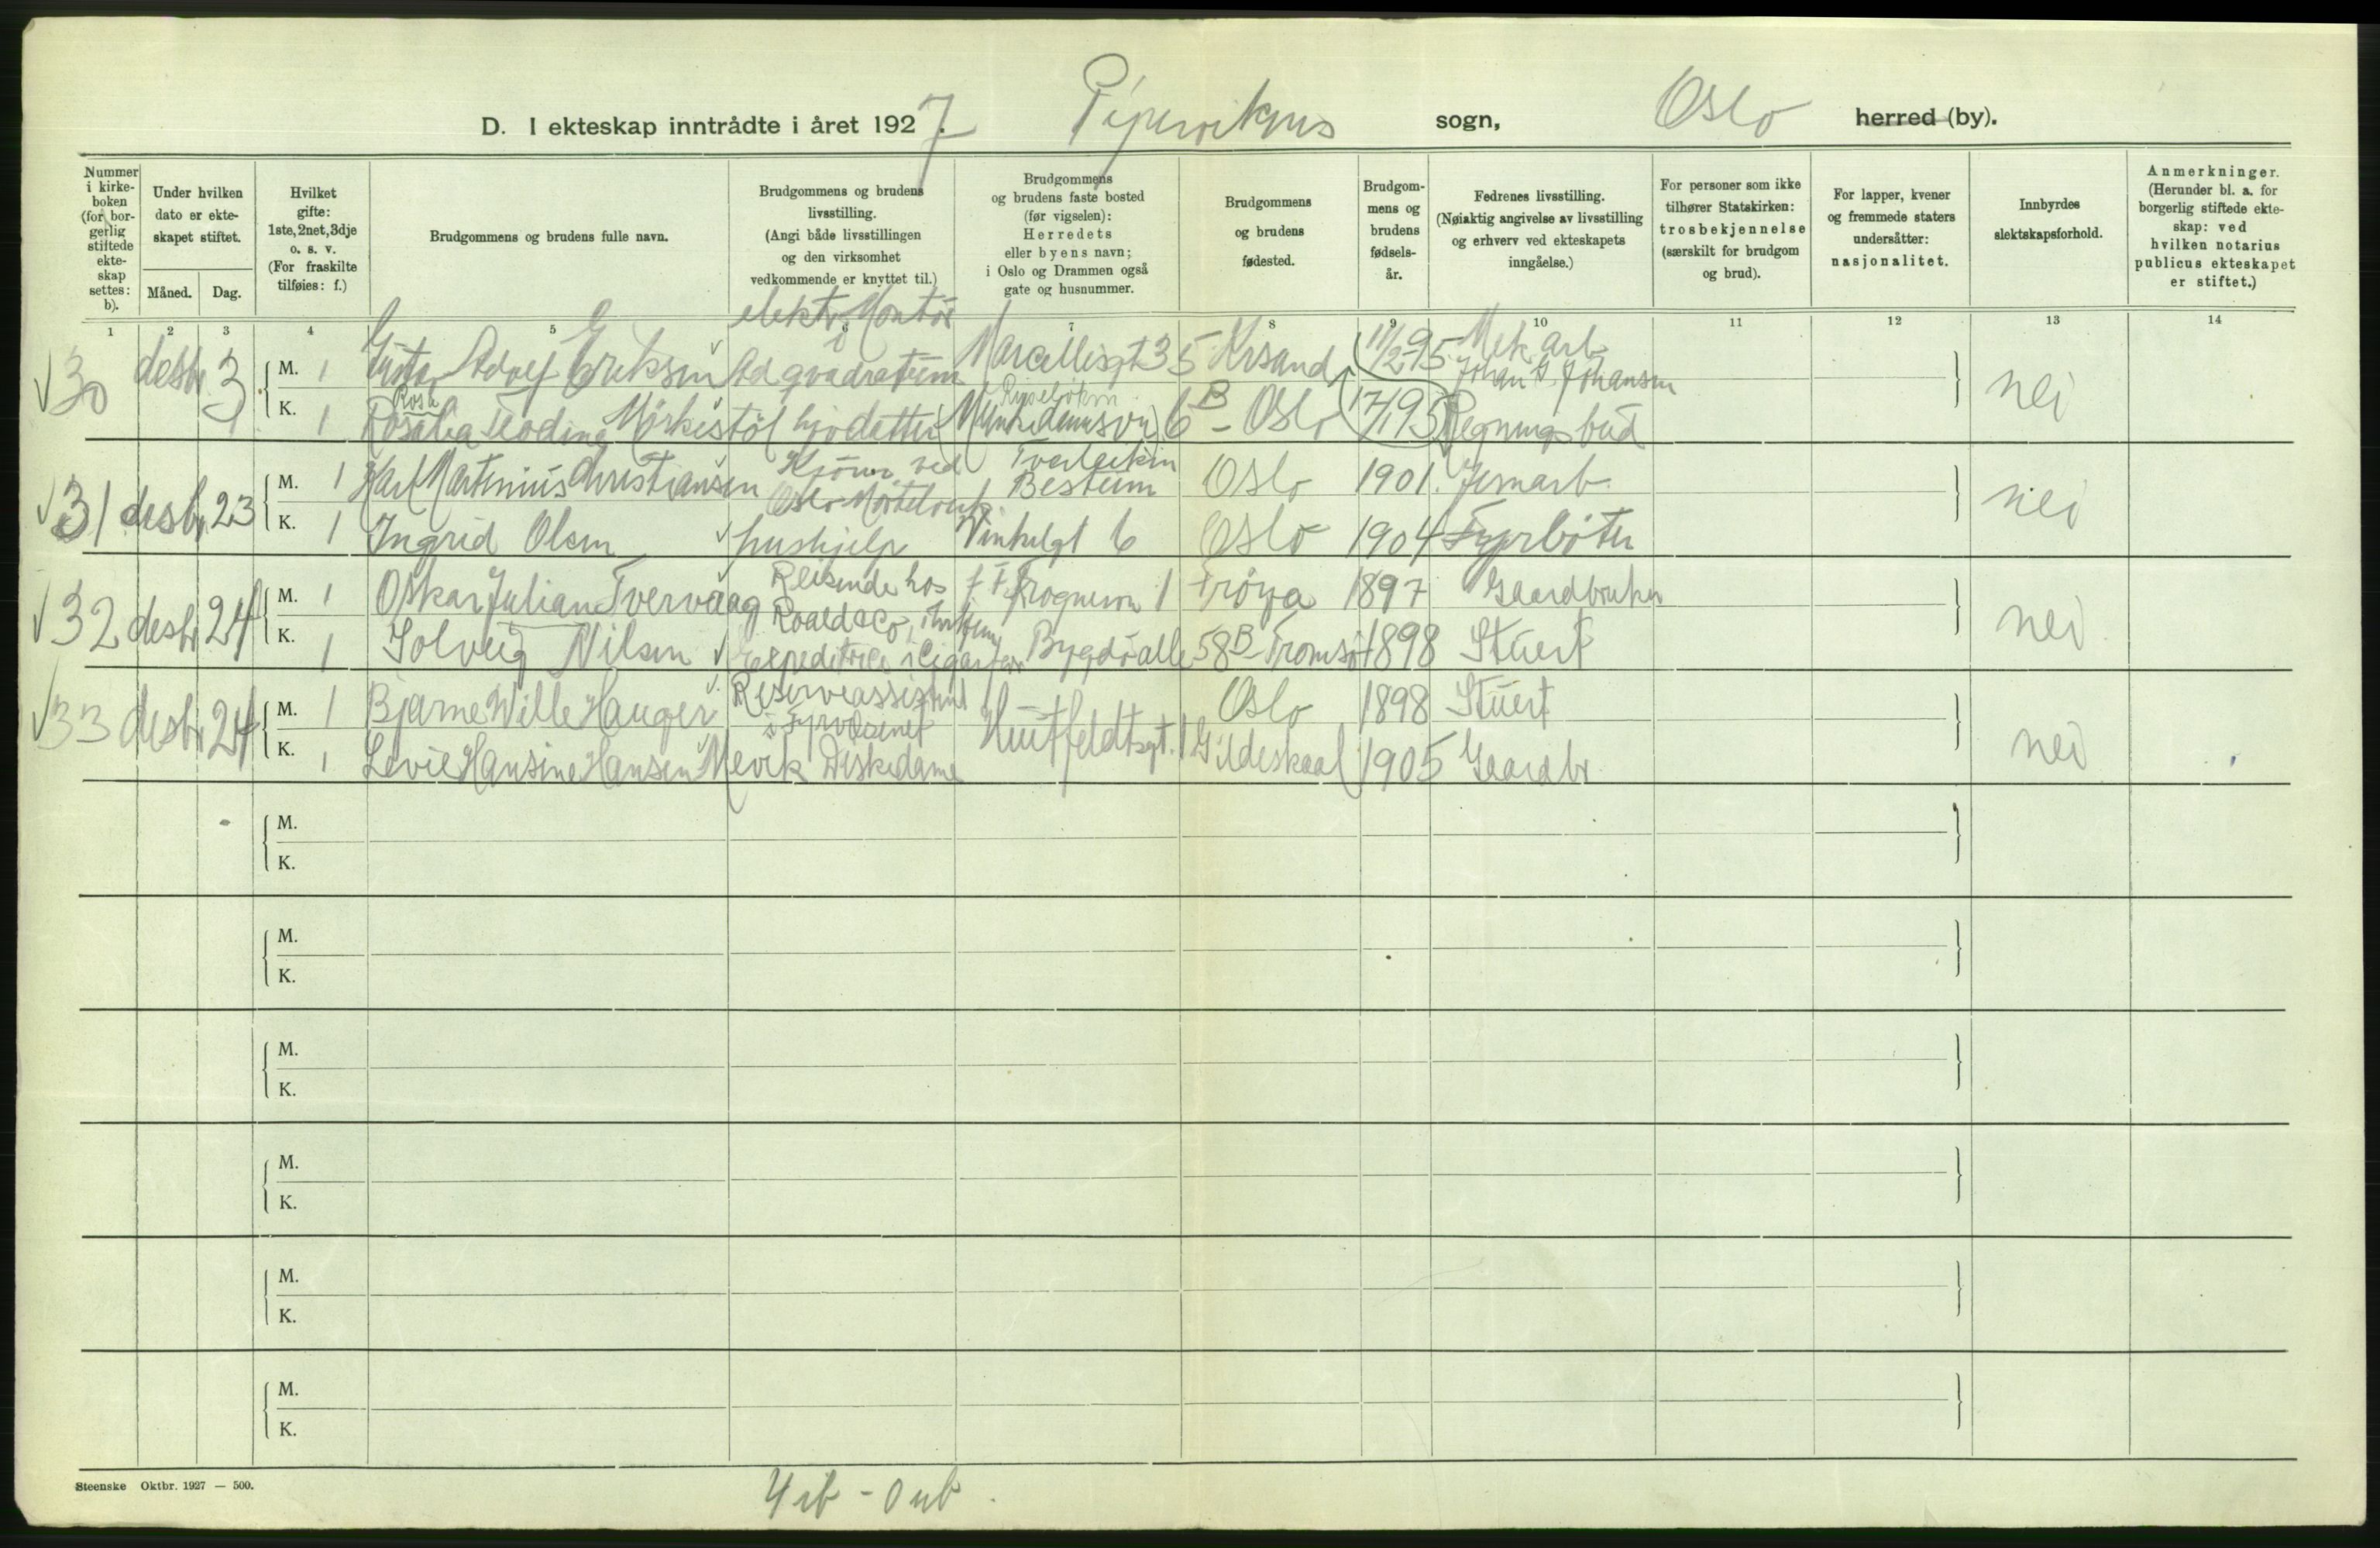 D. I ekteskap inntrådte i året 1927. Pipervikens sogn, Oslo herred (by).
Nummer i kirkeboken (for borgerlig stiftede ekteskap settes: b).
Under hvilken dato er ekteskapet stiftet.
Måned. Dag.
Hvilket gifte: 1ste, 2net, 3dje o. s. v. (For fraskilte tilføies: f.)
Brudgommens og brudens fulle navn.
Brudgommens og brudens livsstilling. (Angi både livsstillingen og den virksomhet vedkommende er knyttet til.)
Brudgommens og brudens faste bosted (før vigselen): Herredets eller byens navn; i Oslo og Drammen også gate og husnummer.
Brudgommens og brudens fødested.
Brudgommens og brudens fødselsår.
Fedrenes livsstilling. (Nøiaktig angivelse av livsstilling og erhverv ved ekteskapets inngåelse.)
For personer som ikke tilhører Statskirken: trosbekjennelse (særskilt for brudgom og brud).
For lapper, kvener og fremmede staters undersåtter: nasjonalitet.
Innbyrdes slektskapsforhold.
Anmerkninger. (Herunder bl. a. for borgerlig stiftede ekteskap: ved hvilken notarius publicus ekteskapet er stiftet.)
1 2 3 4 5 6 7 8 9 10 11 12 13 14
30 desbr 3 M. 1 Gustav Adolf Eriksen elektr. Montör Ad quadratum Marcellisgt 35 Krsand 11/2-95 Mek arb Johan G. Johansen nei
K. 1 Rosa Teodine Mörkestöl hjv datter Munkedamsvn 6 B - Oslo 17/1 95 Regningsbud
31 desbr 23 M. 1 Karl Martinius Christiansen Kjörer ved Bestum Oslo 1901 Jernarb. nei
K. 1 Ingrid Olsen hushjelp Vinkelgt 6 Oslo 1904 Fyrböter
32 desbr 24 M. 1 Oskar Julian Tvervaag Reisende hos Roald & Co, Frognerv 1 Fröya 1897 Gaardbruker nei
K. 1 Solveig Nilsen Expeditrice i Cigarforr Bygdö alle 58 B Tromsö 1898 Stuert
33 desbr 24 M. 1 Bjarne Wille Hauger Reserveassistent i Fyrvesenet Huitfeldtsgt. 1 Oslo 1898 Stuert nei
K. 1 Levie Hansine Hansen Mevik Diskedame Gildeskaal 1905 Gaardbr
M.
K.
M.
K.
M.
K.
M.
K.
M.
K.
M.
K.
Steenske Oktbr. 1927 — 500.
4 ib - 0 ub.